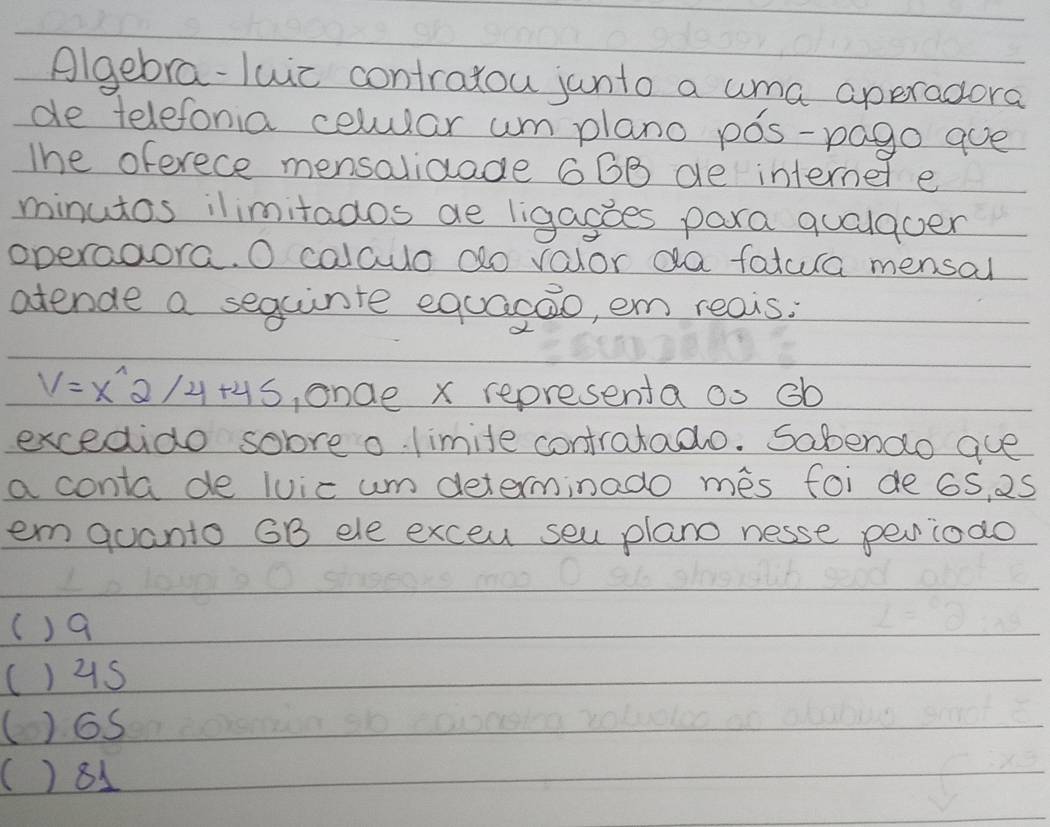 Algebra - luiz contratou junto a uma aperadora
de telefonia celular um plano pós-pago que
lhe oferece mensalidade 6 GB de internet e
minutos ilimitados de ligações para qualquer
operadora. O calculo do valor da fatura mensal
atende a seguinte equação, em reais:
V=x^2/4+45, onde x representa os Gb
excedido sobre o limite contratado. Sabendo que
a conta de luiz um determinado mês foi de 65,25
em quanto GB ele exceu seu plano nesse periodo
( ) 9
( ) 45
( ) 65
( ) 81